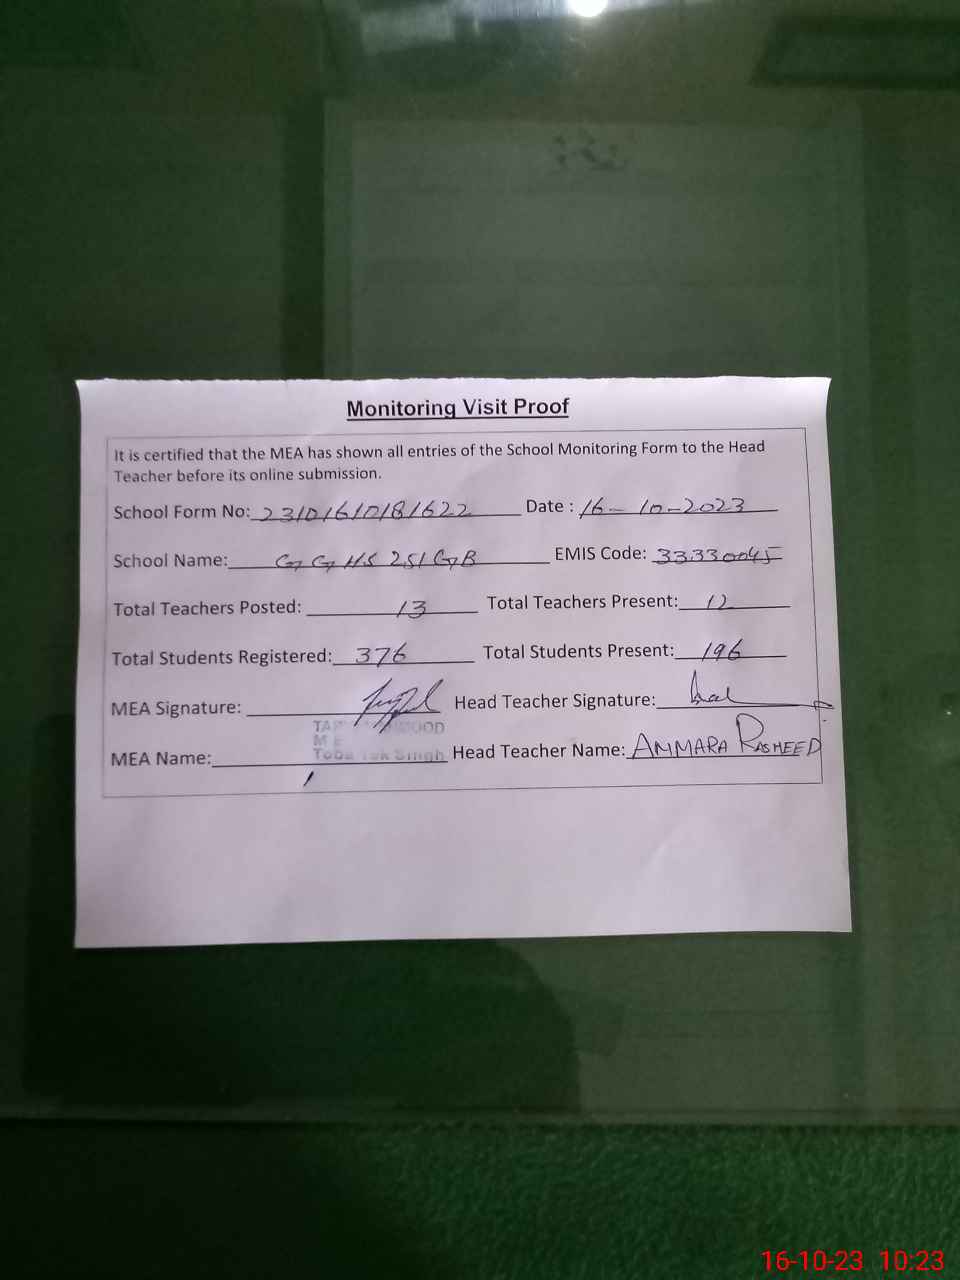 Monitoring Visit Proof
It is certified that the MEA has shown all entries of the School Monitoring Form to the Head
Teacher before its online submission.
School Form No: 23101610181622 Date : 16-10-2023
School Name: GGHS 251 GB EMIS Code: 33330045
Total Teachers Posted: 13 Total Teachers Present: 12
Total Students Registered: 376 Total Students Present: 196
MEA Signature: Head Teacher Signature:
MEA Name: Toba Tek Singh Head Teacher Name: AMMARA RASHEED
16-10-23 10:23